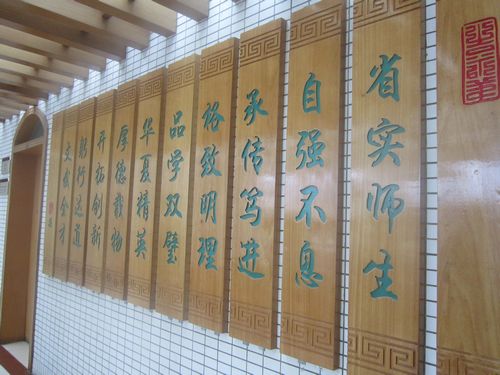 省实师生
自强不息
承传笃进
格致明理
品学双璧
华夏精英
厚德载物
开拓创新
躬行达道
成全才